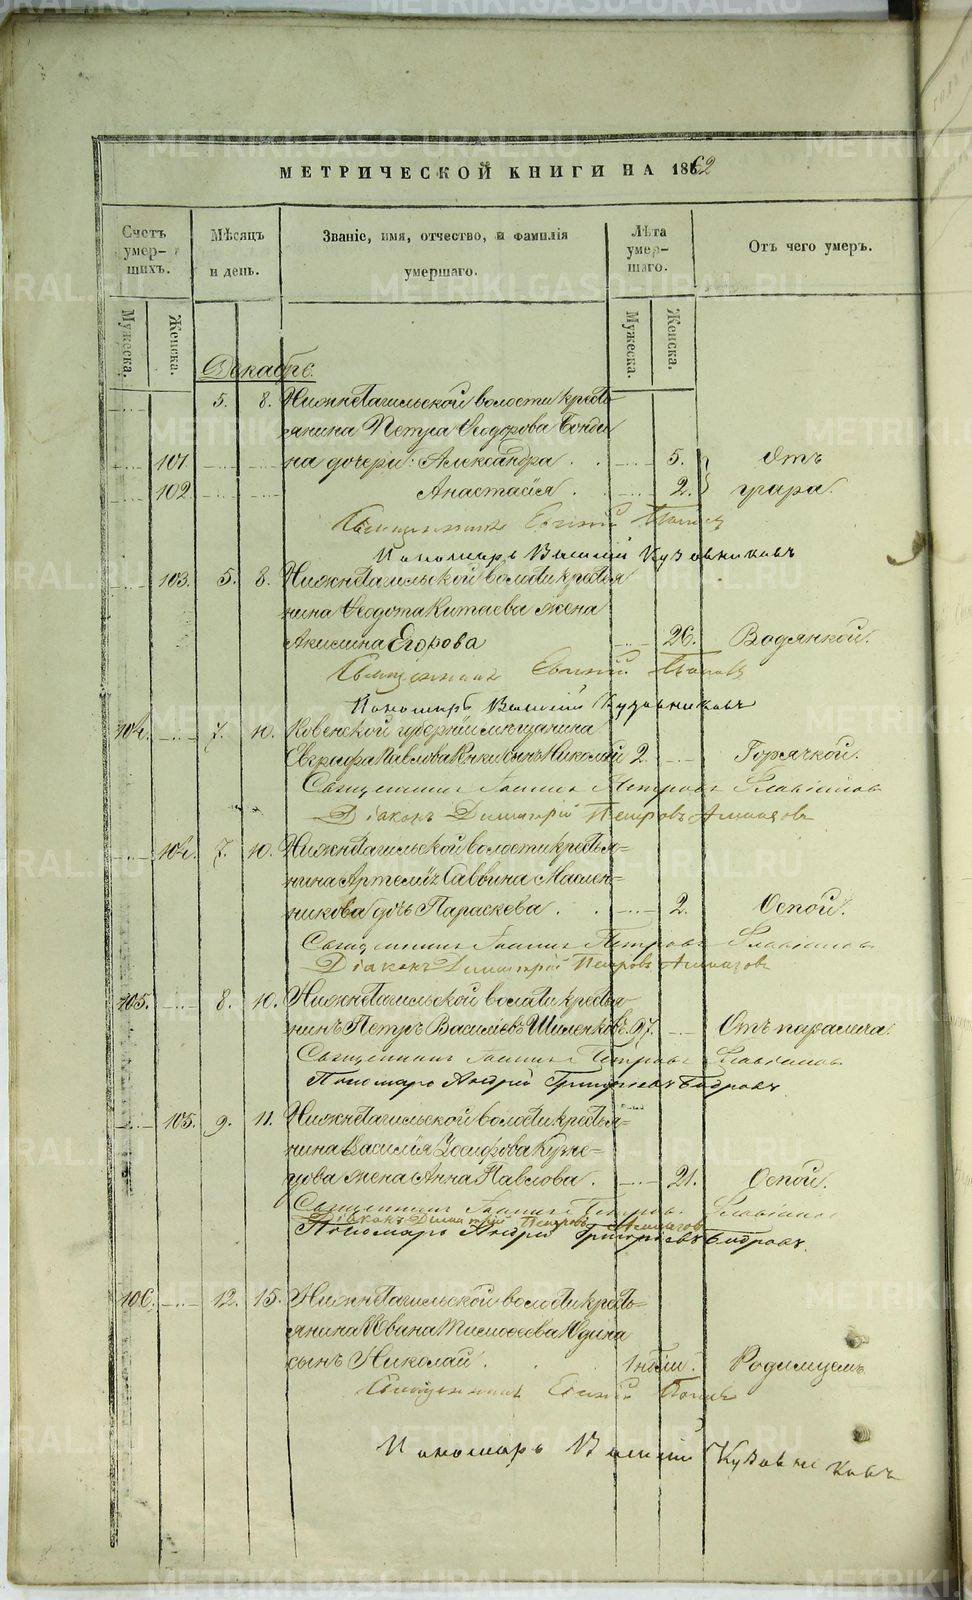 МЕТРИЧЕСКОЙ КНИГИ НА 1862
Счетъ умер-шихъ.
Мѣсяцъ и день.
Званіе, имя, отчество, и фамилія умершаго.
Лѣта умер-шаго.
Отъ чего умеръ.
Мужеска. Женска. Мужеска. Женска.
Декабрь.
5. 8. Нижнетагильской волости кресть-
янина Петра Ѳеодорова
101 на дочери: Александра 5. Отъ
102 Анастасія 2. жара.
Священникъ Евгеній Поповъ
Пономарь Василій Кузовниковъ
103. 5. 8. Нижнетагильской волости крестья
нина Ѳеодота Китаева жена
Акилина Егорова 26. Водянкой.
Священникъ Евгеній Поповъ
Пономарь Василій Кузовниковъ
104. 7. 10. Ковенской губерніи мѣщанина
Евграфа Павлова сынъ Николай 2 Горячкой.
Священникъ Іоаннъ Петровъ Славнинъ
Діаконъ Димитрій Петровъ Алмазовъ
104. 7. 10. Нижнетагильской волости крестья-
нина Артемія Саввина Маслен-
никова дочь Параскева 2. Оспой.
Священникъ Іоаннъ Петровъ
Діаконъ Димитрій Петровъ Алмазовъ
105. 8. 10. Нижнетагильской волости крестья
нинъ Петръ Василіевъ Шиленковъ 97. Отъ паралича.
Священникъ Іоаннъ Петровъ
Пономарь Андрей Григорьевъ Бобровъ
105. 9. 11. Нижнетагильской волости крестья-
нина Василія Іосифова Кузне-
цова жена Анна Павлова. 21. Оспой.
Священникъ Іоаннъ Петровъ
Діаконъ Димитрій Петровъ Алмазовъ
Пономарь Андрей Григорьевъ Бобровъ.
106. 12. 15. Нижнетагильской волости кресть-
янина Ивана Тимоѳеева Юдина
сынъ Николай 1 нѣди. Родимцемъ
Священникъ Евгеній Поповъ
Пономарь Василій Кузовниковъ
METRIKI.GASO-URAL.RU